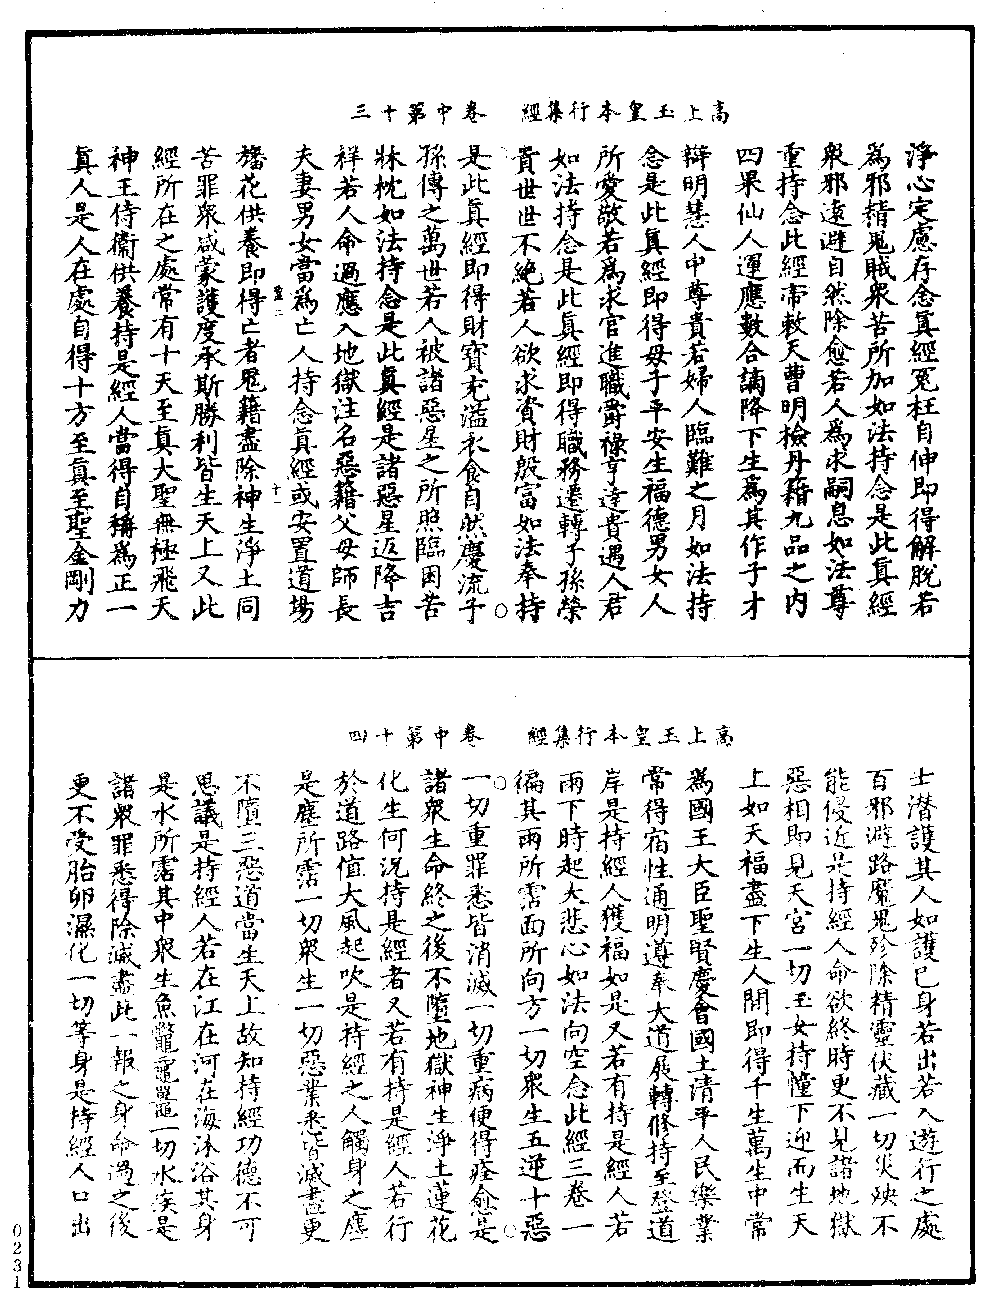 高上玉皇本行集經　卷中第十三
淨心定慮存念真經冤枉自伸即得解脫若
為邪精鬼賊眾苦所加如法持念是此真經
眾邪遠避自然除愈若人為求嗣息如法尊
重持念此經帝敕天曹明檢丹籍九品之內
四果仙人運應數合謫降下生為其作子才
辯明慧人中尊貴若婦人臨難之月如法持
念是此真經即得母子平安生福德男女人
所愛敬若為求官進職爵祿亨達貴遇人君
如法持念是此真經即得職務遷轉子孫榮
貴世世不絕若人欲求資財殷富如法奉持
是此真經即得財寶充溢衣食自然慶流子
孫傳之萬世若人被諸惡星之所照臨困苦
牀枕如法持念是此真經是諸惡星返降吉
祥若人命過應入地獄注名惡籍父母師長
夫妻男女當為亡人持念真經或安置道場
旛花供養即得亡者鬼籍盡除神生淨土同
苦罪眾咸蒙護度承斯勝利皆生天上又此
經所在之處常有十天至真大聖無極飛天
神王侍衛供養持是經人當得自稱為正一
真人是人在處自得十方至真至聖金剛力
高上玉皇本行集經　卷中第十四
士潛護其人如護己身若出若入遊行之處
百邪避路魔鬼殄除精靈伏藏一切災殃不
能侵近是持經人命欲終時更不見諸地獄
惡相即見天宮一切玉女持幢下迎而生天
上如天福盡下生人間即得千生萬生中常
為國王大臣聖賢慶會國土清平人民樂業
常得宿性通明遵奉大道展轉修持至登道
岸是持經人獲福如是又若有持是經人若
雨下時起大悲心如法向空念此經三卷一
徧其雨所霑面所向方一切眾生五逆十惡
一切重罪悉皆消滅一切重病便得痊愈是
諸眾生命終之後不墮地獄神生淨土蓮花
化生何況持是經者又若有持是經人若行
於道路值大風起吹是持經之人觸身之塵
是塵所霑一切眾生一切惡業悉皆滅盡更
不墮三惡道當生天上故知持經功德不可
思議是持經人若在江在河在海沐浴其身
是水所霑其中眾生魚鼈黿鼉一切水族是
諸眾罪悉得除滅盡此一報之身命過之後
更不受胎卵濕化一切等身是持經人口出
0231